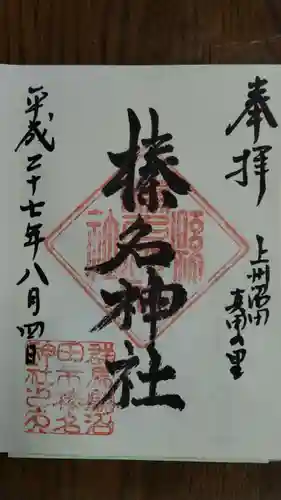 奉拝
上州沼田
真田の里
榛名神社
平成二十七年八月四日
群馬県沼
田市榛名
神社之印